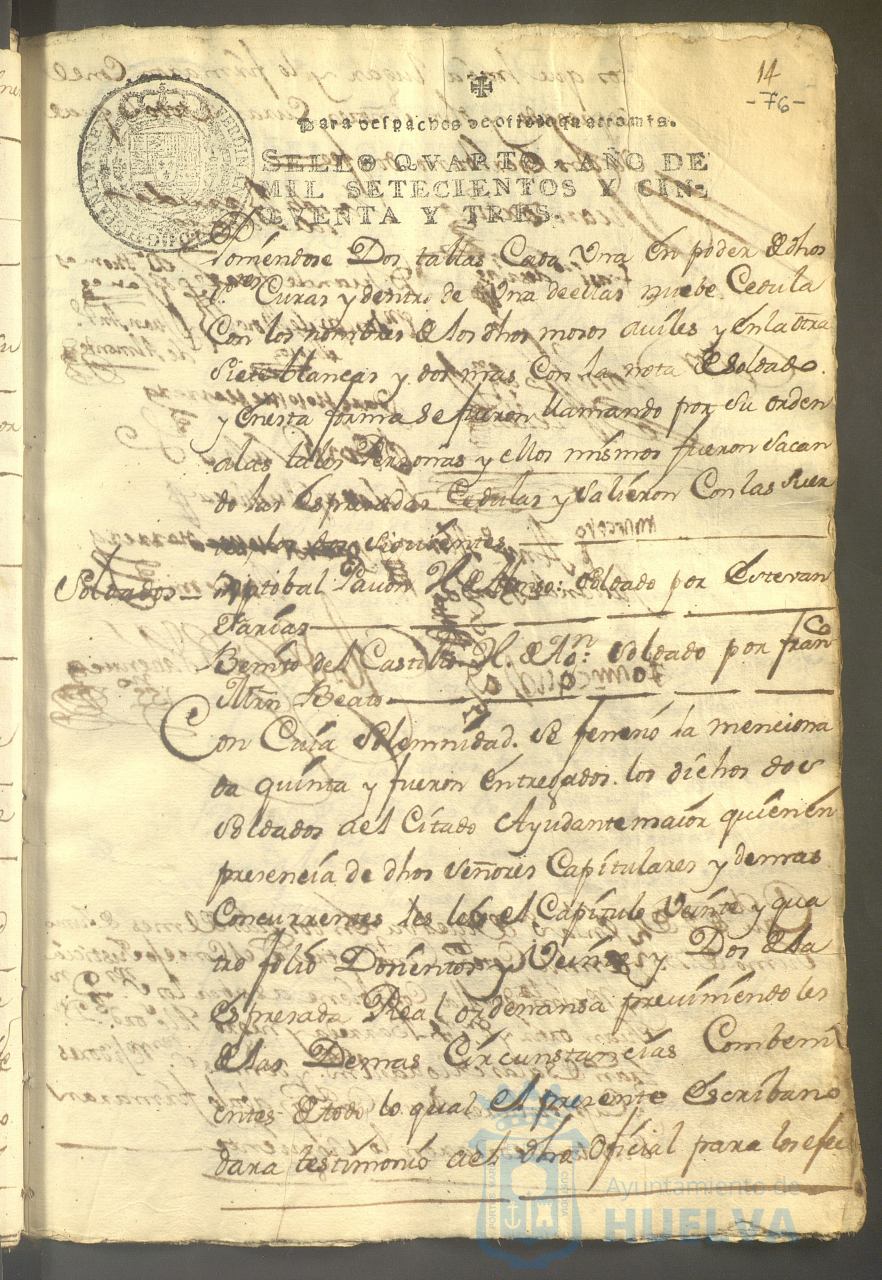 14
-76-
Para despachos de oficio quatro mrs.
SELLO QVARTO, AÑO DE
MIL SETECIENTOS Y CIN-
QVENTA Y TRES.
Poniendose Dos tallas Cada Una en poder de dhos
Sres Curas y dentro de Una de ellas nuebe Cedula
Con los nombres de los dhos mosos aviles y en la otra
Siete blancas y dos mas Con la nota de Soldado.
y en esta forma se fueron llamando por su orden
a las tales Perzonas y ellos mismos fueron Sacan
do las Espresadas Cedulas y Salieron Con las Suer
tes los dos Siguientes
Soldados – Xptobal Pavon H. de Alonso: Soldado por Estevan
Farias
Benito del Castillo H. de Anº: Soldado por franco
Mrn Beato
Con Cuia Solemnidad. se feneció la menciona
da quinta y fueron Entregados. los dichos dos
Soldados al Citado Ayudante maior quien en
presencia de dhos Señores Capitulares y demas
Concurrentes les leio el Capitulo Veinte y qua
tro folio Dosientos y Veinte y Dos de la
Espresada Real ordenansa previniendoles
de las Demas Circunstancias Combeni
entes de todo lo qual el presente Escribano
dara testimonio al dho Oficial para los efec
Ayuntamiento de
HUELVA